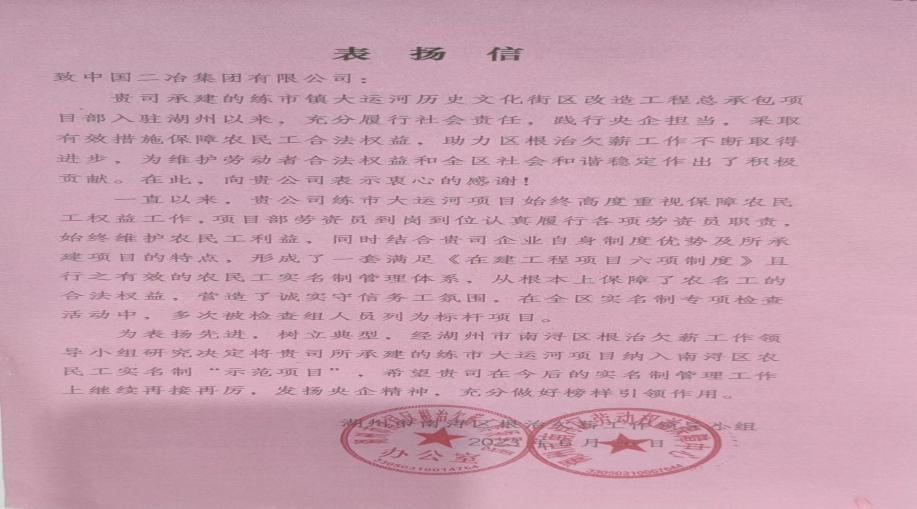 表 扬 信
致中国二冶集团有限公司：
贵司承建的练市镇大运河历史文化街区改造工程总承包项
目部入驻湖州以来，充分履行社会责任，践行央企担当，采取
有效措施保障农民工合法权益，助力区根治欠薪工作不断取得
进步，为维护劳动者合法权益和全区社会和谐稳定作出了积极
贡献。在此，向贵公司表示衷心的感谢！
一直以来，贵公司练市大运河项目始终高度重视保障农民
工权益工作，项目部劳资员到岗到位认真履行各项劳资员职责，
始终维护农民工利益，同时结合贵司企业自身制度优势及所承
建项目的特点，形成了一套满足《在建工程项目六项制度》且
行之有效的农民工实名制管理体系，从根本上保障了农名工的
合法权益，营造了诚实守信务工氛围，在全区实名制专项检查
活动中，多次被检查组人员列为标杆项目。
为表扬先进，树立典型，经湖州市南浔区根治欠薪工作领
导小组研究决定将贵司所承建的练市大运河项目纳入南浔区农
民工实名制“示范项目”，希望贵司在今后的实名制管理工作
上继续再接再厉，发扬央企精神，充分做好榜样引领作用。
湖州市南浔区根治欠薪工作领导小组
2023年6月 日
办公室